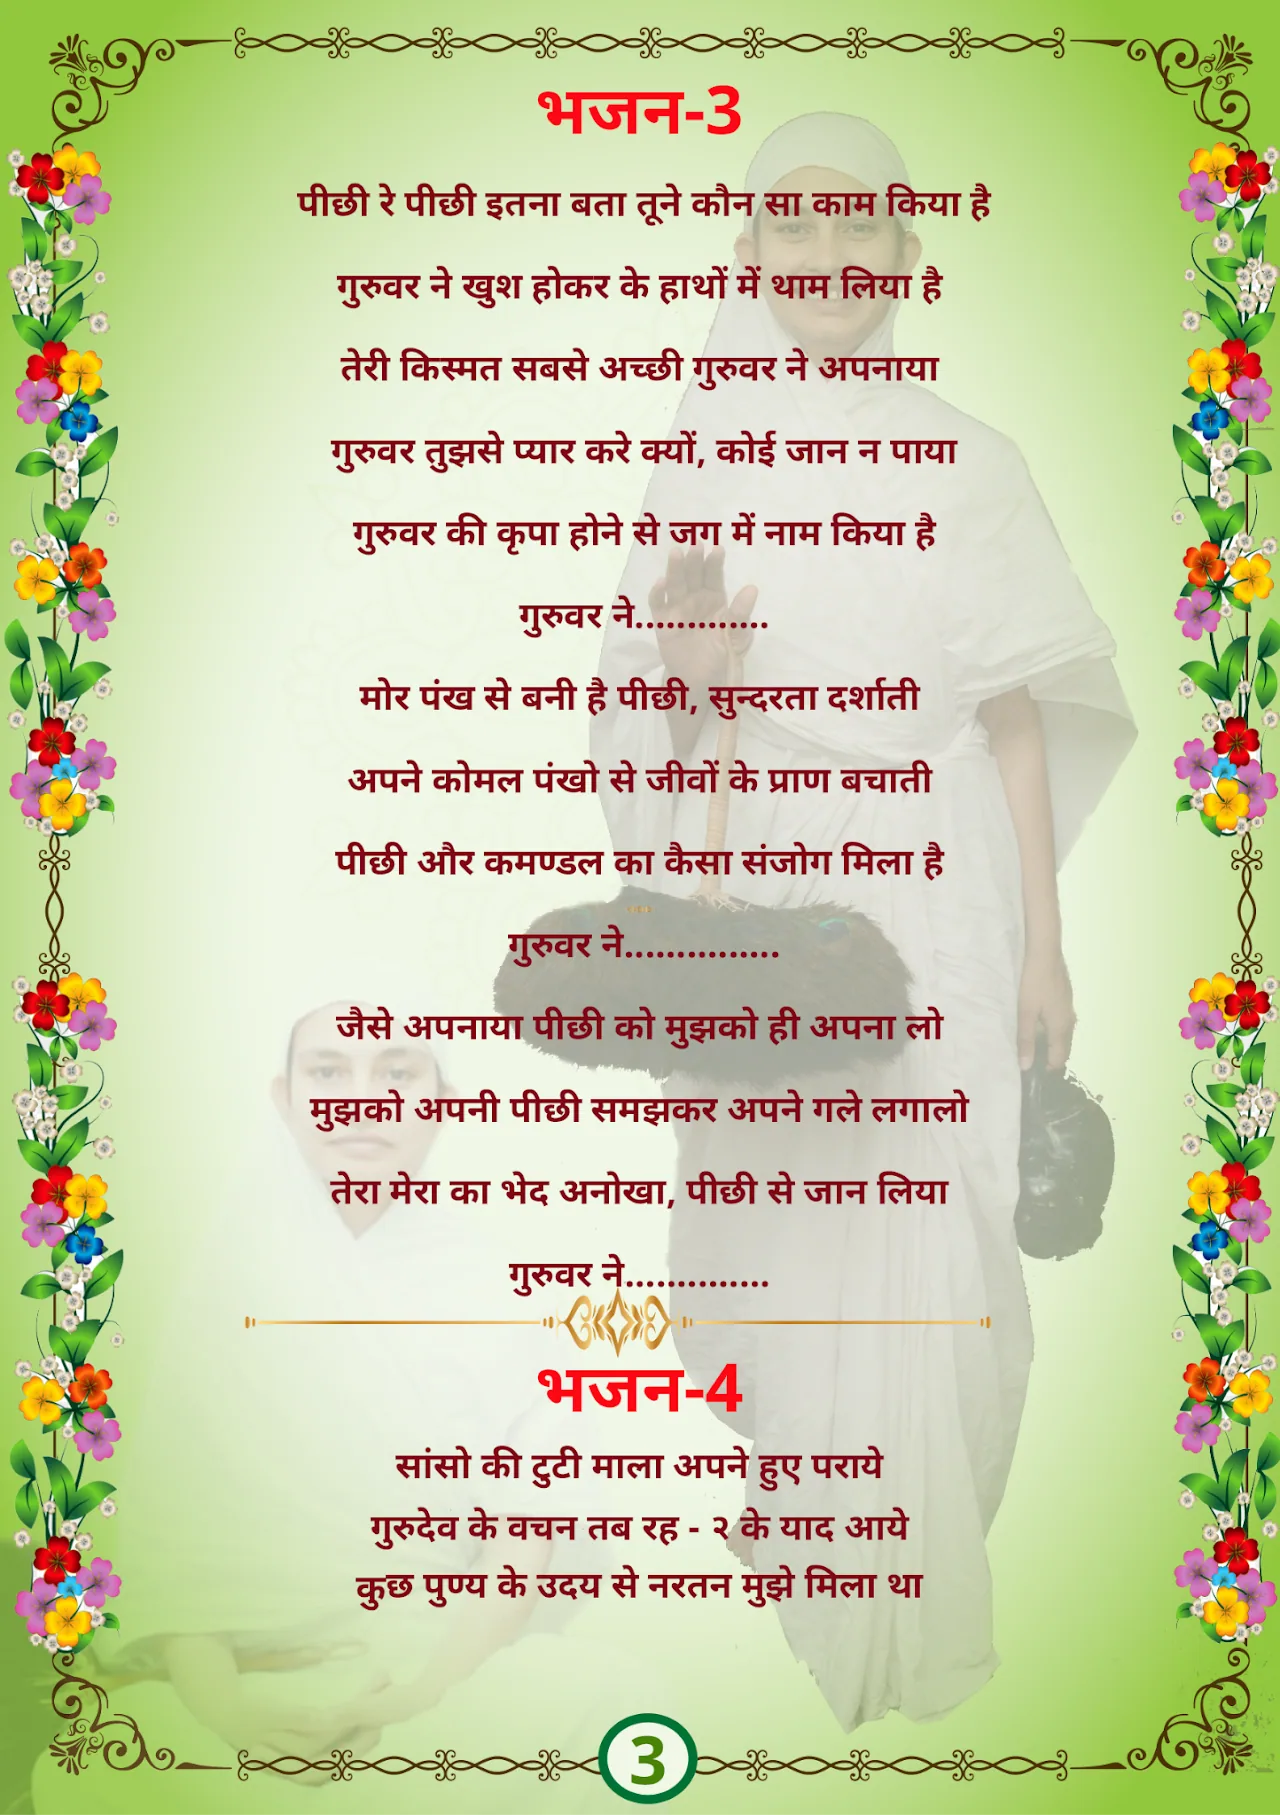 भजन-3
पीछी रे पीछी इतना बता तूने कौन सा काम किया है
गुरुवर ने खुश होकर के हाथों में थाम लिया है
तेरी किस्मत सबसे अच्छी गुरुवर ने अपनाया
गुरुवर तुझसे प्यार करे क्यों, कोई जान न पाया
गुरुवर की कृपा होने से जग में नाम किया है
गुरुवर ने.............
मोर पंख से बनी है पीछी, सुन्दरता दर्शाती
अपने कोमल पंखो से जीवों के प्राण बचाती
पीछी और कमण्डल का कैसा संजोग मिला है
गुरुवर ने...............
जैसे अपनाया पीछी को मुझको ही अपना लो
मुझको अपनी पीछी समझकर अपने गले लगालो
तेरा मेरा का भेद अनोखा, पीछी से जान लिया
गुरुवर ने..............
भजन-4
सांसो की टुटी माला अपने हुए पराये
गुरुदेव के वचन तब रह - २ के याद आये
कुछ पुण्य के उदय से नरतन मुझे मिला था
3